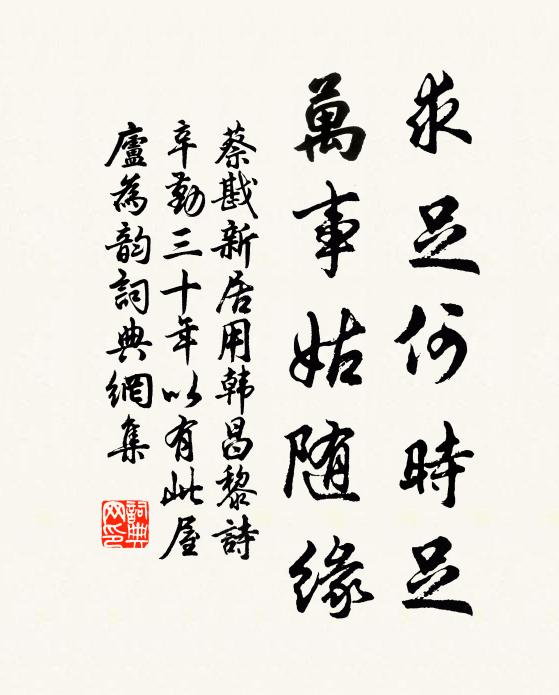 求足何時足
萬事姑随緣
蔡戡新居用韓昌黎詩
辛勤三十年以有此屋
廬為韵詞典網集
詞典網印